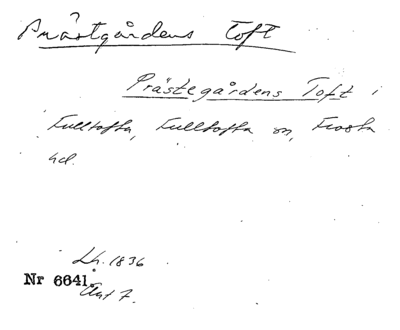 Prästgårdens Toft
Prästegårdens Toft i
Fulltofta, Fulltofta sn, Frosta
hd.
Lh. 1836
Nr 6641.
Akt 7.